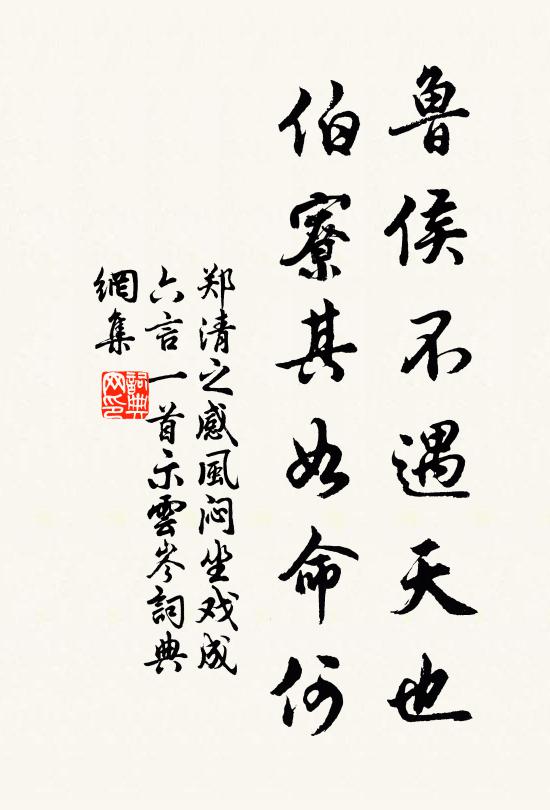 鲁侯不遇天也
伯寮其如命何
郑清之感風闷坐戏成
六言一首示雲岑詞典
網集
詞典网印